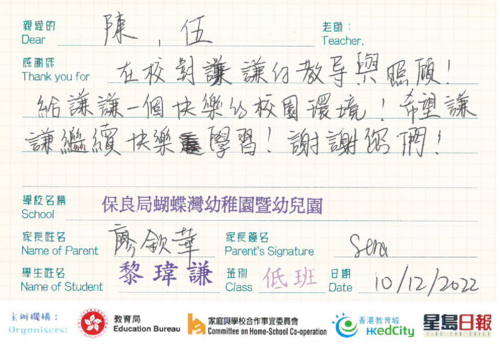 親愛的 陳，伍 老師：
Dear Teacher,
感謝您 在校對謙謙的教导與照顧！
Thank you for
給謙謙一個快樂的校園環境！希望謙
謙繼續快樂學習！謝謝您們！
學校名稱 保良局蝴蝶灣幼稚園暨幼兒園
School
家長姓名 廖欽華 家長簽名
Name of Parent Parent's Signature
學生姓名 黎瑋謙 班別 低班 日期 10/12/2022
Name of Student Class Date
主辦機構：
Organisers:
教育局
Education Bureau
家庭與學校合作事宜委員會
Committee on Home-School Co-operation
香港教育城
HKedCity
星島日報